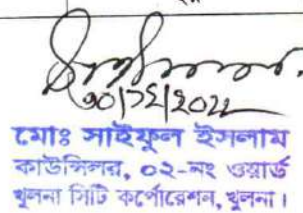 ৩০/১২/২০২১
মোঃ সাইফুল ইসলাম
কাউন্সিলর, ০২-নং ওয়ার্ড
খুলনা সিটি কর্পোরেশন, খুলনা।